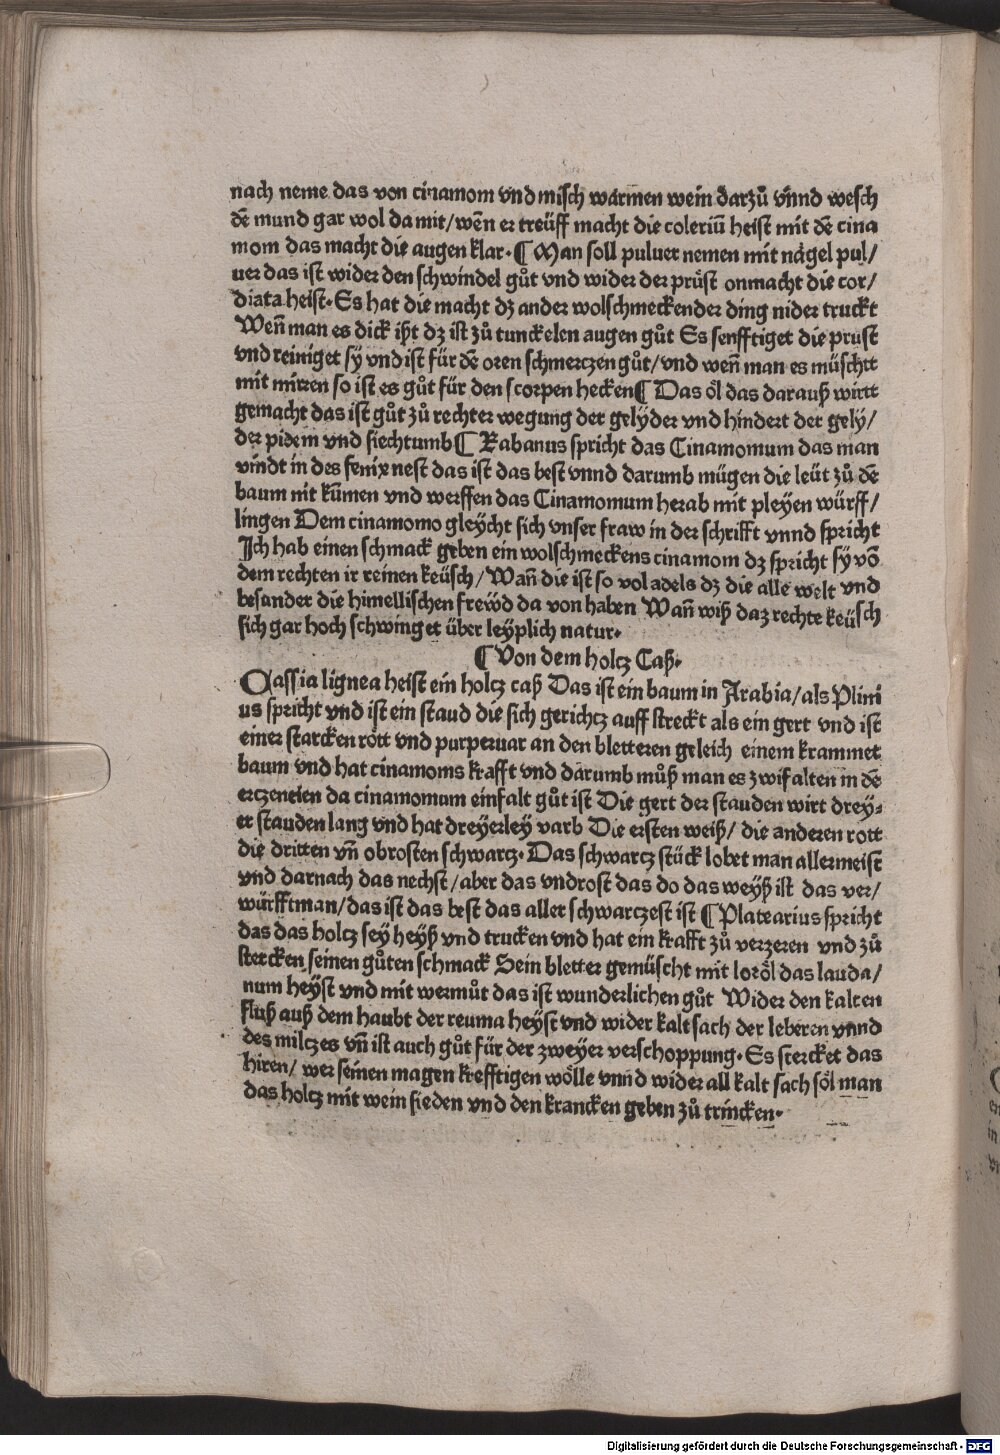 nach neme das von cinamom vnd misch warmen wein darzů vnnd wesch
dē mund gar wol da mit/ wēn er treüff macht die coleriū heist mit dē cina
mom das macht die augen klar. ¶ Man soll puluer nemen mit nägel pul/
uer das ist wider den schwindel gůt vnd wider der prüst onmacht die cor/
diata heist. Es hat die macht dz ander wolschmeckender ding nider truckt
Wen̄ man es dick ißt dz ist zů tunckelen augen gůt Es senfftiget die prust
vnd reiniget sy vnd ist für dē oren schmertzen gůt/ vnd wen̄ man es müschtt
mit mirren so ist es gůt für den scorpen hecken ¶ Das öl das darauß wirtt
gemacht das ist gůt zů rechter wegung der gelyder vnd hindert der gely/
der pidem vnd siechtumb ¶ Rabanus spricht das Cinamomum das man
vindt in des fenix nest das ist das best vnnd darumb mügen die leüt zů dē
baum nit kum̄en vnd werffen das Cinamomum herab mit pleyen würff/
lingen Dem cinamomo gleycht sich vnser fraw in der schrifft vnnd spricht
Ich hab einen schmack geben ein wolschmeckens cinamom dz spricht sy vō
dem rechten ir reinen keüsch/ Wan̄ die ist so vol adels dz die alle welt vnd
besander die himellischen frewd da von haben Wan̄ wiß daz rechte keüsch
sich gar hoch schwinget über leyplich natur.
¶ Von dem holtz Caß.
Cassia lignea heist ein holtz caß Das ist ein baum in Arabia/ als Plini
us spricht vnd ist ein staud die sich gerichtz auff streckt als ein gert vnd ist
einer starcken rött vnd purperuar an den bletteren geleich einem krammet
baum vnd hat cinamoms krafft vnd darumb můß man es zwifalten in dē
ertzeneien da cinamomum einfalt gůt ist Die gert der stauden wirt drey⸗
er stauden lang vnd hat dreyerley varb Die ersten weiß/ die anderen rott
die dritten vn̄ obrosten schwartz. Das schwartz stück lobet man allermeist
vnd darnach das nechst/ aber das vndrost das do das weyß ist das ver/
würfftman/ das ist das best das aller schwartzest ist ¶ Platearius spricht
das das holtz sey heyß vnd trucken vnd hat ein krafft zů verzeren vnd zů
stercken seinen gůten schmack Sein bletter gemüscht mit loröl das lauda/
num heyst vnd mit wermůt das ist wunderlichen gůt Wider den kalten
fluß auß dem haubt der reuma heyst vnd wider kalt sach der leberen vnnd
des miltzes vn̄ ist auch gůt für der zweyer verschoppung. Es stercket das
hiren/ wer seinen magen krefftigen wölle vnnd wider all kalt sach söl man
das holtz mit wein sieden vnd den krancken geben zů trincken.
Digitalisierung gefördert durch die Deutsche Forschungsgemeinschaft - DFG